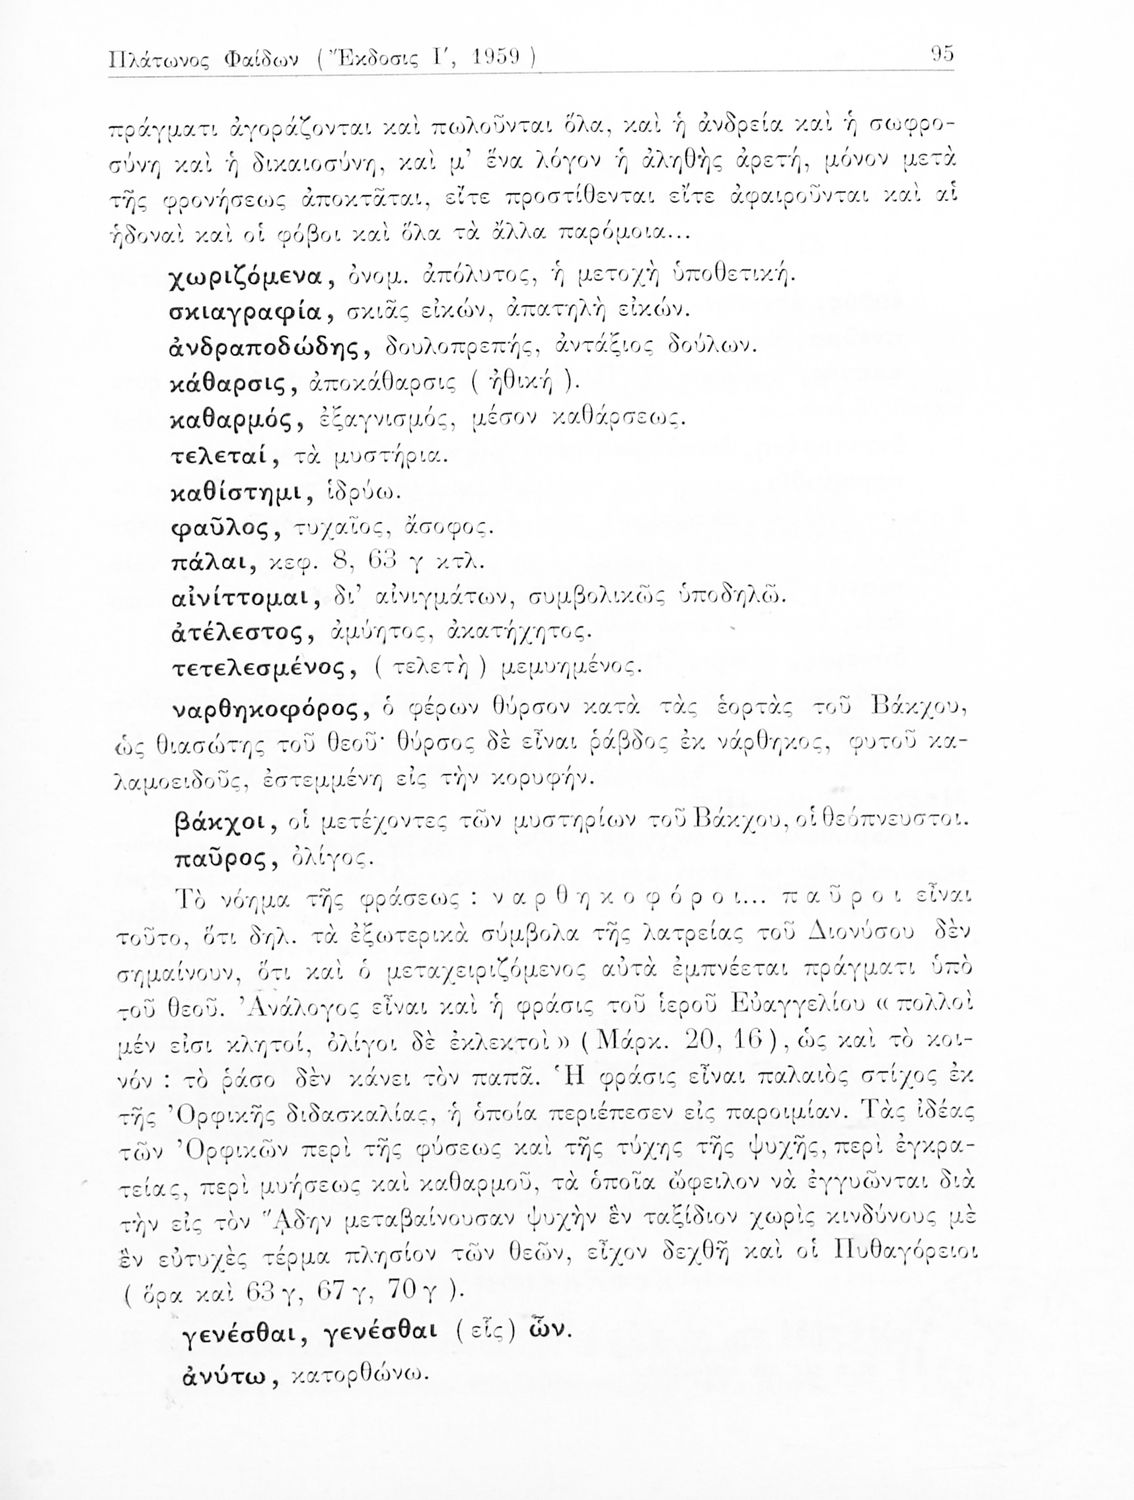 Πλάτωνος Φαίδων ( Ἔκδοσις Γ′, 1959 ) 95
πράγματι ἀγοράζονται καὶ πωλοῦνται ὅλα, καὶ ἡ ἀνδρεία καὶ ἡ σωφρο-
σύνη καὶ ἡ δικαιοσύνη, καὶ μ’ ἕνα λόγον ἡ ἀληθὴς ἀρετή, μόνον μετὰ
τῆς φρονήσεως ἀποκτᾶται, εἴτε προστίθενται εἴτε ἀφαιροῦνται καὶ αἱ
ἡδοναὶ καὶ οἱ φόβοι καὶ ὅλα τὰ ἄλλα παρόμοια...
χωριζόμενα, ὀνομ. ἀπόλυτος, ἡ μετοχὴ ὑποθετική.
σκιαγραφία, σκιᾶς εἰκών, ἀπατηλὴ εἰκών.
ἀνδραποδώδης, δουλοπρεπής, ἀντάξιος δούλων.
κάθαρσις, ἀποκάθαρσις ( ἠθική ).
καθαρμός, ἐξαγνισμός, μέσον καθάρσεως.
τελεταί, τὰ μυστήρια.
καθίστημι, ἱδρύω.
φαῦλος, τυχαῖος, ἄσοφος.
πάλαι, κεφ. 8, 63 γ κτλ.
αἰνίττομαι, δι’ αἰνιγμάτων, συμβολικῶς ὑποδηλῶ.
ἀτέλεστος, ἀμύητος, ἀκατήχητος.
τετελεσμένος, ( τελετὴ ) μεμυημένος.
ναρθηκοφόρος, ὁ φέρων θύρσον κατὰ τὰς ἑορτὰς τοῦ Βάκχου,
ὡς θιασώτης τοῦ θεοῦ· θύρσος δὲ εἶναι ῥάβδος ἐκ νάρθηκος, φυτοῦ κα-
λαμοειδοῦς, ἐστεμμένη εἰς τὴν κορυφήν.
βάκχοι, οἱ μετέχοντες τῶν μυστηρίων τοῦ Βάκχου, οἱ θεόπνευστοι.
παῦρος, ὀλίγος.
Τὸ νόημα τῆς φράσεως : ναρθηκοφόροι... παῦροι εἶναι
τοῦτο, ὅτι δηλ. τὰ ἐξωτερικὰ σύμβολα τῆς λατρείας τοῦ Διονύσου δὲν
σημαίνουν, ὅτι καὶ ὁ μεταχειριζόμενος αὐτὰ ἐμπνέεται πράγματι ὑπὸ
τοῦ θεοῦ. Ἀνάλογος εἶναι καὶ ἡ φράσις τοῦ ἱεροῦ Εὐαγγελίου « πολλοὶ
μέν εἰσι κλητοί, ὀλίγοι δὲ ἐκλεκτοὶ » ( Μάρκ. 20, 16 ), ὡς καὶ τὸ κοι-
νόν : τὸ ράσο δὲν κάνει τὸν παπᾶ. Ἡ φράσις εἶναι παλαιὸς στίχος ἐκ
τῆς Ὀρφικῆς διδασκαλίας, ἡ ὁποία περιέπεσεν εἰς παροιμίαν. Τὰς ἰδέας
τῶν Ὀρφικῶν περὶ τῆς φύσεως καὶ τῆς τύχης τῆς ψυχῆς, περὶ ἐγκρα-
τείας, περὶ μυήσεως καὶ καθαρμοῦ, τὰ ὁποῖα ὤφειλον νὰ ἐγγυῶνται διὰ
τὴν εἰς τὸν Ἅδην μεταβαίνουσαν ψυχὴν ἓν ταξίδιον χωρὶς κινδύνους μὲ
ἓν εὐτυχὲς τέρμα πλησίον τῶν θεῶν, εἶχον δεχθῆ καὶ οἱ Πυθαγόρειοι
( ὅρα καὶ 63 γ, 67 γ, 70 γ ).
γενέσθαι, γενέσθαι ( εἷς ) ὧν.
ἀνύτω, κατορθώνω.